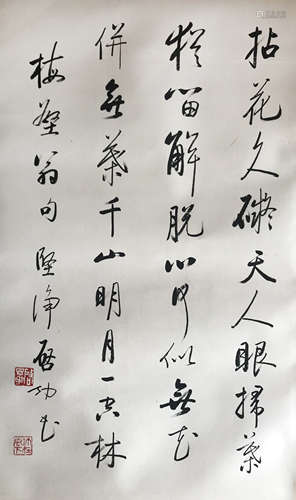 拈花久礙天人眼掃葉
猶留解脱心何似無花
併無葉千山明月一空林
梅壑翁句 堅净啓功書